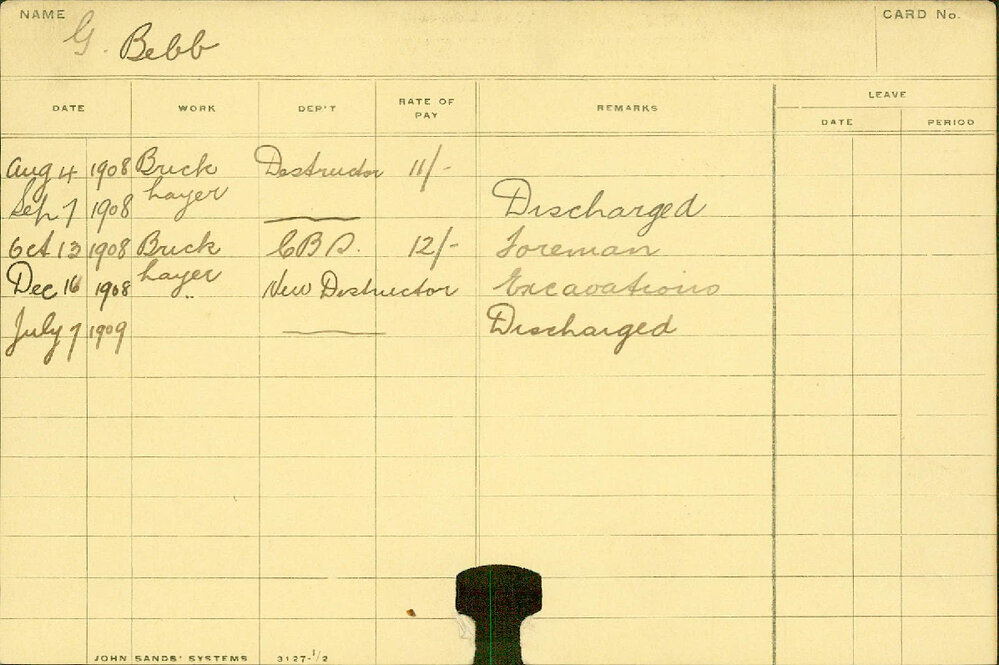 NAME G. Bebb CARD No.
DATE WORK DEP'T RATE OF PAY REMARKS LEAVE
DATE PERIOD
Aug 4 1908 Brick Destructor 11/-
Sep 7 1908 Layer Discharged
Oct 13 1908 Brick C B D. 12/- Foreman
Dec 16 1908 Layer „ New Destructor Excavations
July 7 1909 Discharged
JOHN SANDS' SYSTEMS 3127-1/2